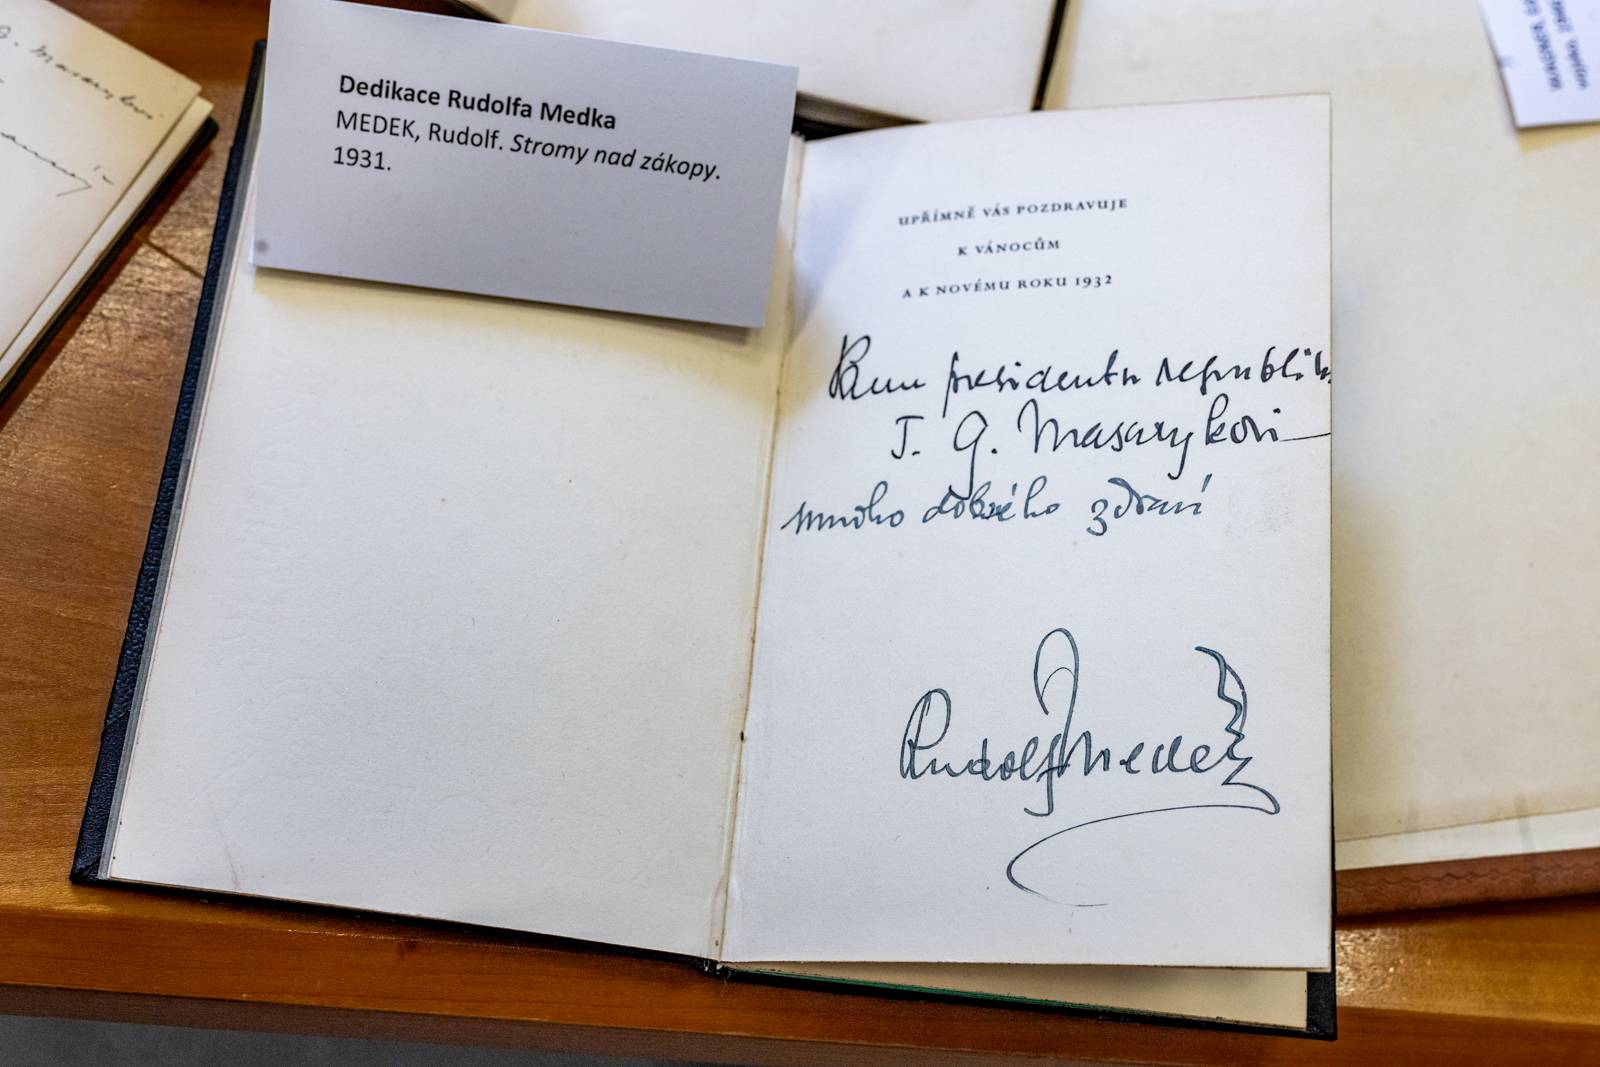 Dedikace Rudolfa Medka
MEDEK, Rudolf. Stromy nad zákopy.
1931.
UPŘÍMNĚ VÁS POZDRAVUJE
K VÁNOCŮM
A K NOVÉMU ROKU 1932
Panu presidentu republiky
T. G. Masarykovi
mnoho dobrého zdraví
Rudolf Medek
G. Masarykovi